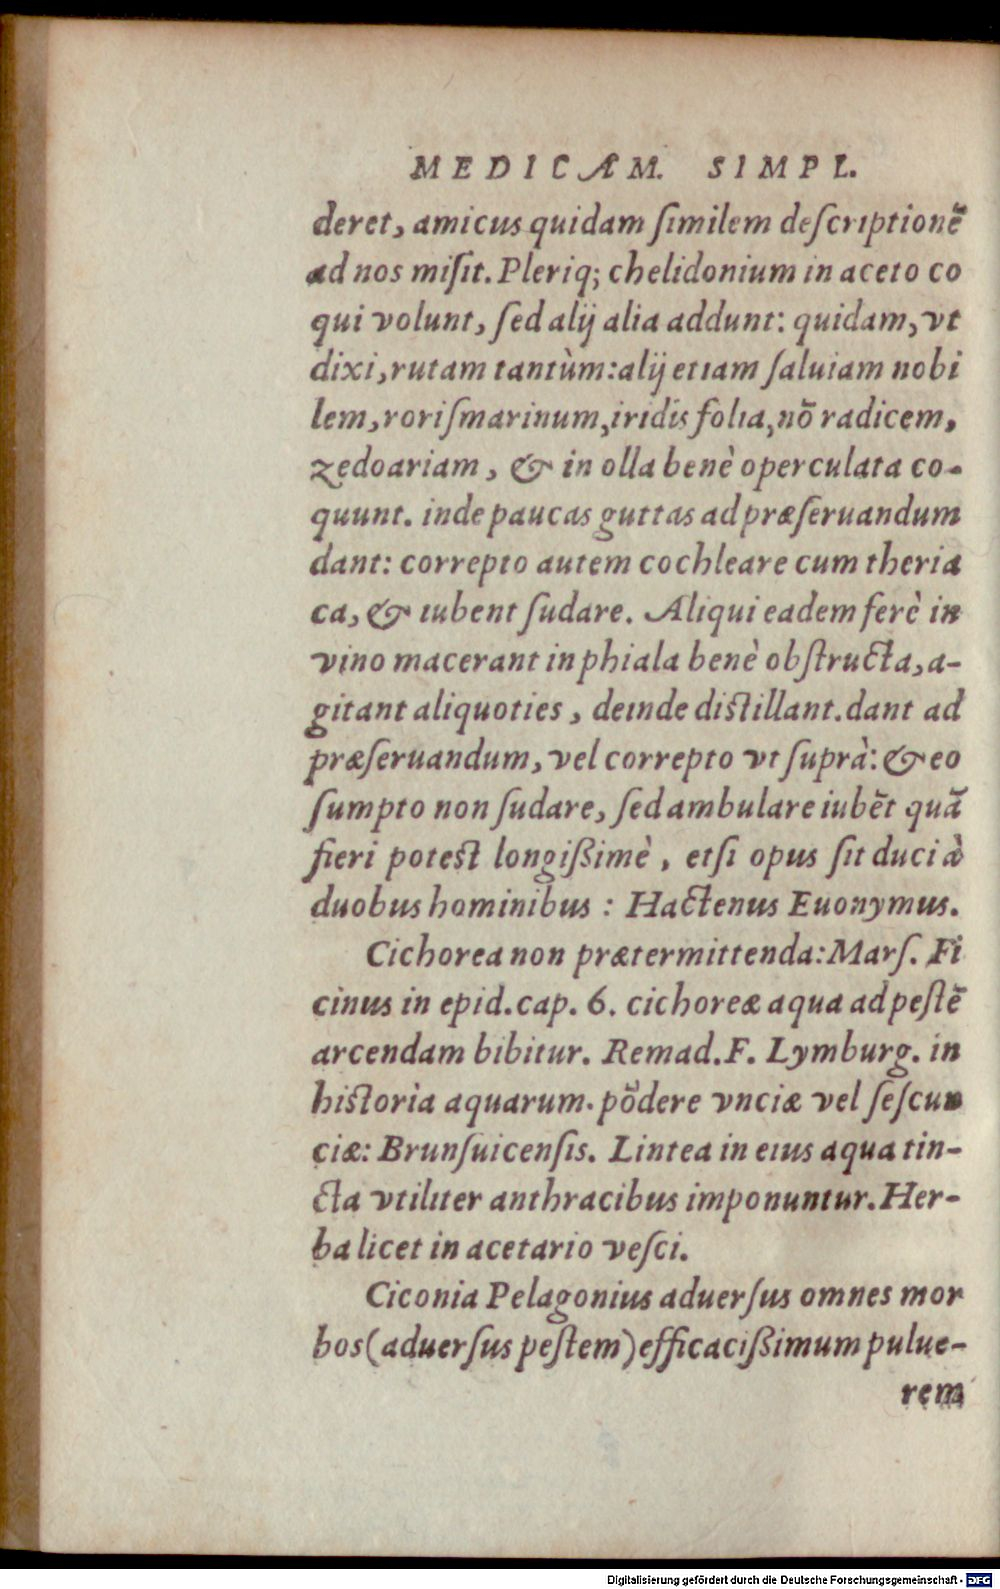 MEDICÆM. SIMPL.
deret, amicus quidam ſimilem deſcriptionē
ad nos miſit. Pleriq; chelidonium in aceto co
qui volunt, ſed alij alia addunt: quidam, vt
dixi, rutam tantùm: alij etiam ſaluiam nobi
lem, roriſmarinum, iridis folia, nō radicem,
zedoariam, & in olla benè operculata co-
quunt. inde paucas guttas ad præſeruandum
dant: correpto autem cochleare cum theria
ca, & iubent ſudare. Aliqui eadem ferè in
vino macerant in phiala benè obſtructa, a-
gitant aliquoties, deinde diſtillant. dant ad
præſeruandum, vel correpto vt ſuprà: & eo
ſumpto non ſudare, ſed ambulare iubēt quā
fieri poteſt longißimè, etſi opus ſit duci à
duobus hominibus: Hactenus Euonymus.
Cichorea non prætermittenda: Marſ. Fi
cinus in epid. cap. 6. cichoreæ aqua ad peſtē
arcendam bibitur. Remad. F. Lymburg. in
hiſtoria aquarum. pōdere vnciæ vel ſeſcun
ciæ: Brunſuicenſis. Lintea in eius aqua tin-
cta vtiliter anthracibus imponuntur. Her-
ba licet in acetario veſci.
Ciconia Pelagonius aduerſus omnes mor
bos (aduerſus peſtem) efficacißimum pulue-
rem
Digitalisierung gefördert durch die Deutsche Forschungsgemeinschaft - DFG